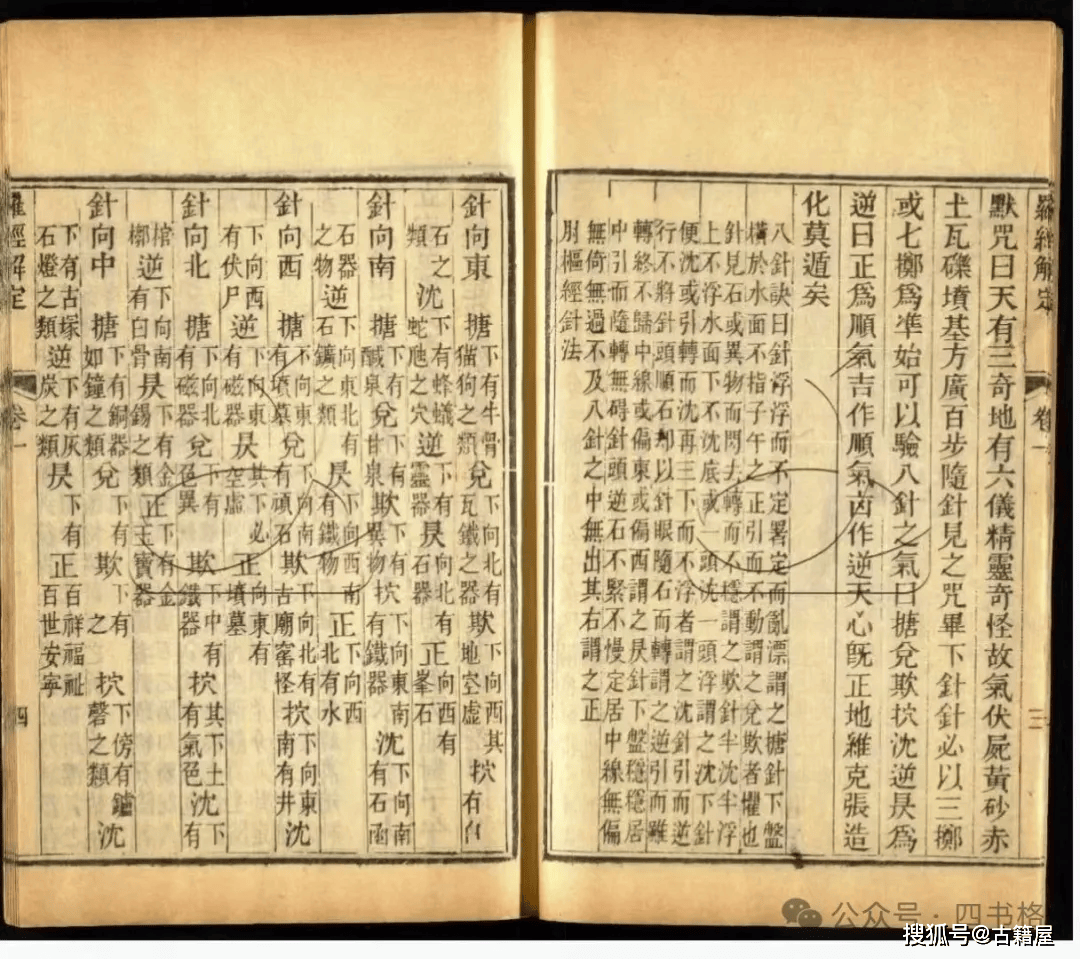 羅經解定
卷一
三
默咒曰天有三奇地有六儀精靈奇怪故氣伏屍黃砂赤
土瓦礫墳基方廣百步隨針見之咒畢下針針必以三擲
或七擲爲準始可以驗八針之氣曰搪兌欺㧒沈逆㫕爲
逆曰正爲順氣吉作順氣凶作逆天心旣正地維克張造
化莫遁矣
八針訣曰針浮浮而不定署定而亂漂謂之搪針下盤
橫於水面不指子午之正引而不動謂之兌欺者懼也
針見石或異物而閃去轉而不穩謂之欺針半沈半浮
上不浮水面下不沈底或一頭沈一頭浮謂之沈下針
便沈或引轉而沈再三下而不浮者謂之沈針引而逆
行不將針頭順石却以針眼隨石而轉謂之逆引而雖
轉終不歸中線或偏東或偏西謂之㫕針下盤穩穩居
中引而隨轉無碍針頭逆石不緊不慢定居中線無偏
無倚無過不及八針之中無出其右謂之正
肘樞經針法
針向東 搪下有牛骨猫狗之類兌下向北有瓦鐵之器欺下向西其地空虛㧒
石之下有蜂蟻類 沈蛇虺之穴逆下有靈器㫕向北有石器正向西有峯石
針向南 搪下有鹹泉兌下有甘泉欺下有異物㧒下向東南有鐵器沈下向南有石函
石器下向東北之物逆石鑛之類㫕下向西南有鐵物正下向西北有水
針向西 搪下向南有墳墓兌下向南有頑石欺下向北有古廟窰怪㧒下向東南有井沈
下向西有伏尸逆下向東有磁器㫕其下必空虛正向東有墳墓
針向北 搪下向北有磁器兌下有色異欺下中有鐵器㧒其下土有氣色沈下有
棺下向南槨逆有白骨㫕下有金錫之類正下有金玉寶器
針向中 搪下有銅器如鐘之類兌下有欺下有之㧒下傍有鑪磬之類沈
下有古塚石燈之類逆下有灰炭之類㫕下有正百祥福祉百世安寧
羅經解定
卷一
四
公众号·四书格
搜狐号@古籍屋